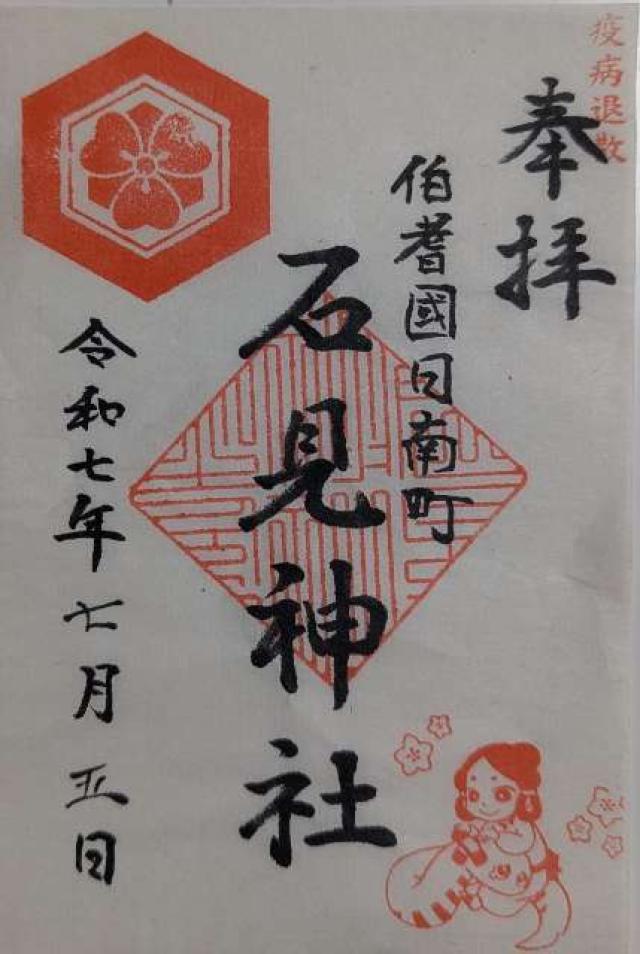 疫病退散
奉拝
伯耆國日南町
石見神社
令和七年七月五日